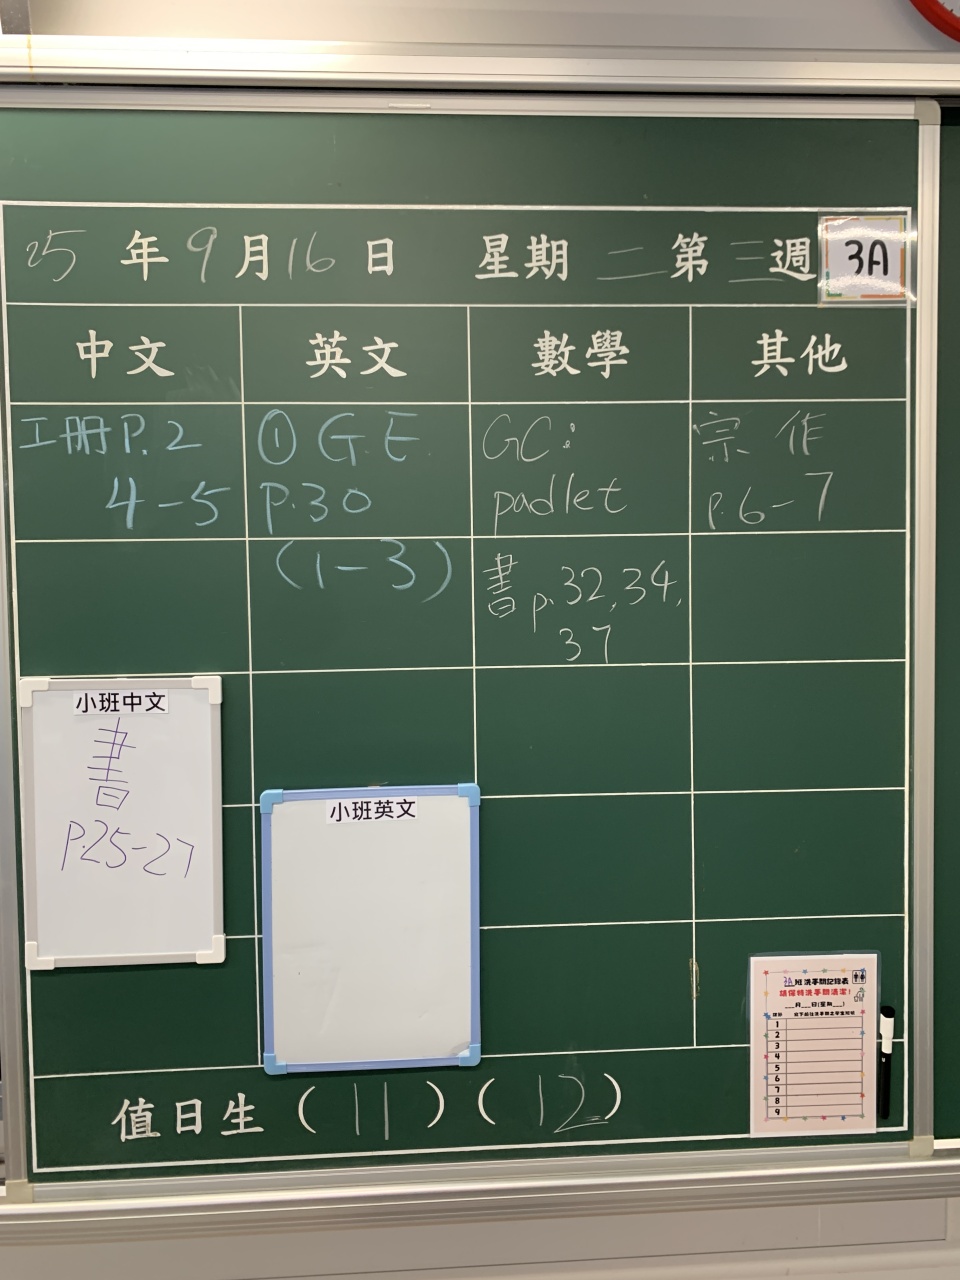 25年9月16日 星期二第三週 3A
中文 英文 數學 其他
工冊P.2
4-5
① G.E.
P.30
(1-3)
GC:
padlet
書p.32,34,
37
宗 作
p.6-7
小班中文
書
P.25-27
小班英文
3A班洗手間記錄表
請保持洗手間清潔!
___月___日(星期___)
1
2
3
4
5
6
7
8
9
值日生(11)(12)